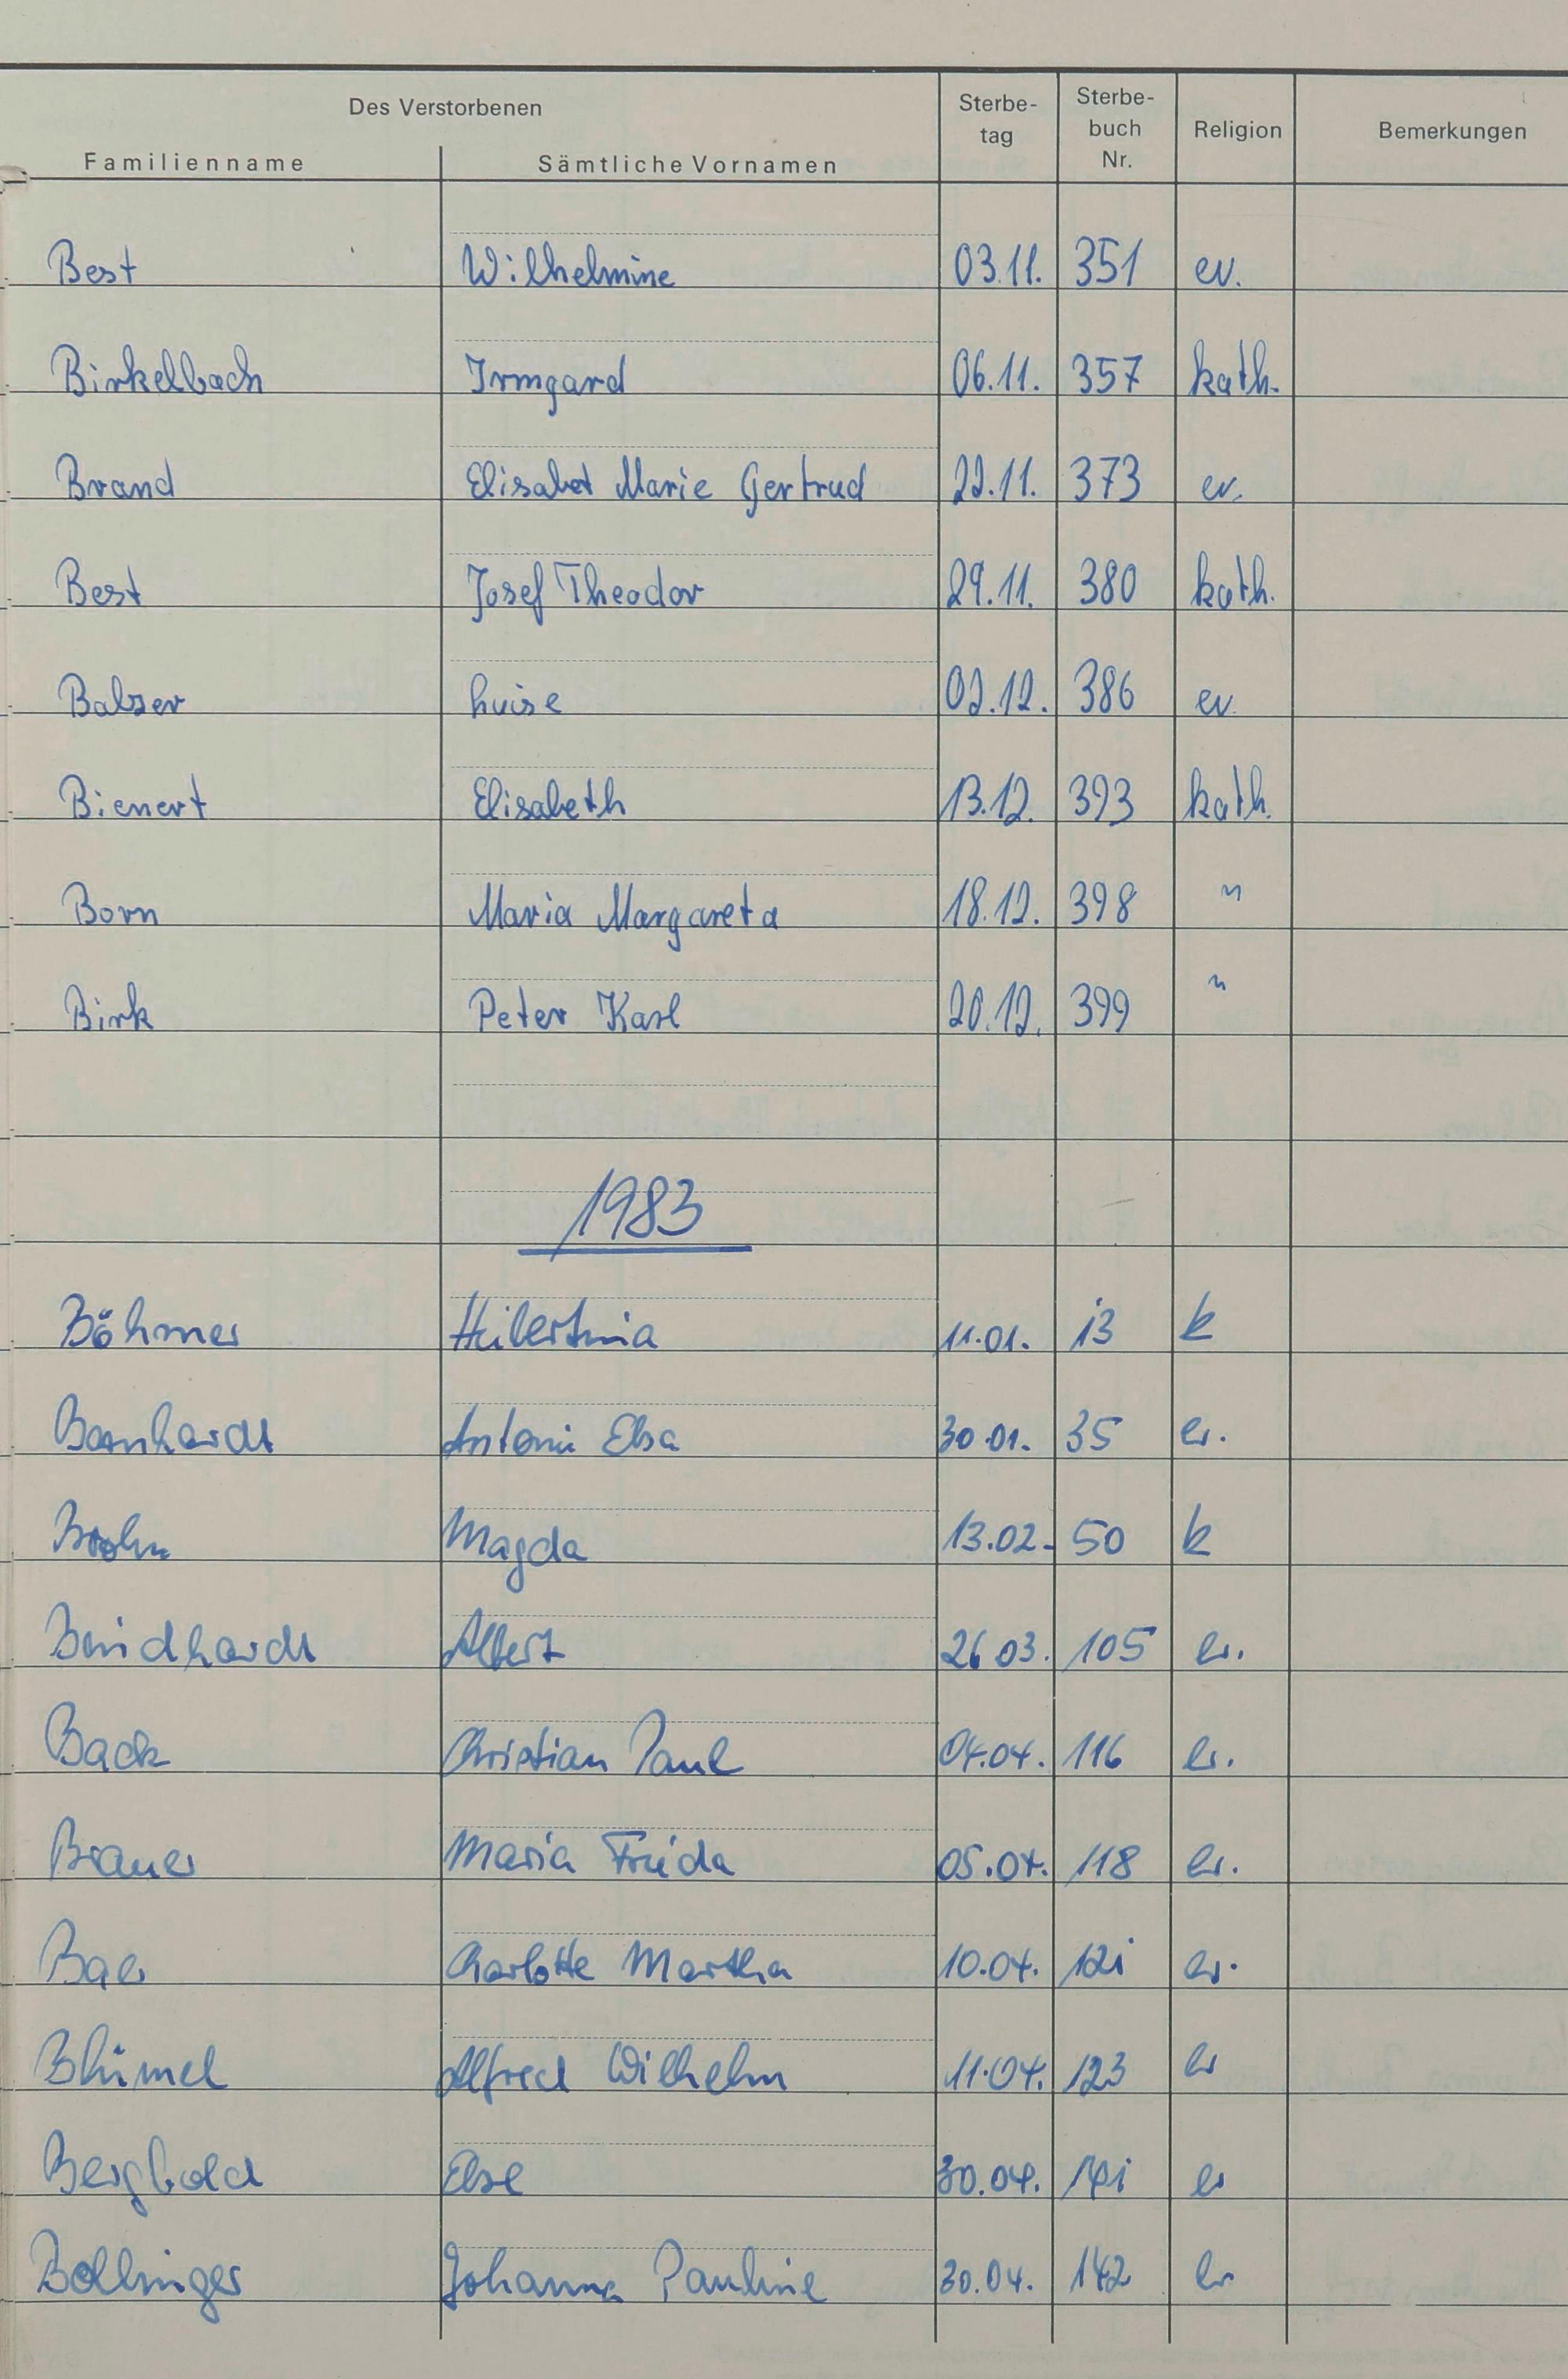 Des Verstorbenen
Familienname Sämtliche Vornamen Sterbe-tag Sterbe-buch Nr. Religion Bemerkungen
Best Wilhelmine 03.11. 351 ev.
Birkelbach Irmgard 06.11. 357 kath.
Brand Elisabet Marie Gertrud 22.11. 373 ev.
Best Josef Theodor 29.11. 380 kath.
Balzer Luise 02.12. 386 ev.
Bienert Elisabeth 13.12. 393 kath.
Born Maria Margareta 18.12. 398 "
Birk Peter Karl 20.12. 399 "
1983
Böhmer 11.01. 13 k
Bernhardt Antonie Elsa 30.01. 35 ev.
Magda 13.02. 50 k
Albert 26.03. 105 ev.
Back Christian Paul 04.04. 116 ev.
Brauer Maria Frieda 05.04. 118 ev.
Baer Charlotte Martha 10.04. 121 ev.
Blümel Alfred Wilhelm 11.04. 123 ev
Bergbold Else 30.04. 141 ev
Bollinger Johanna Pauline 30.04. 142 ev